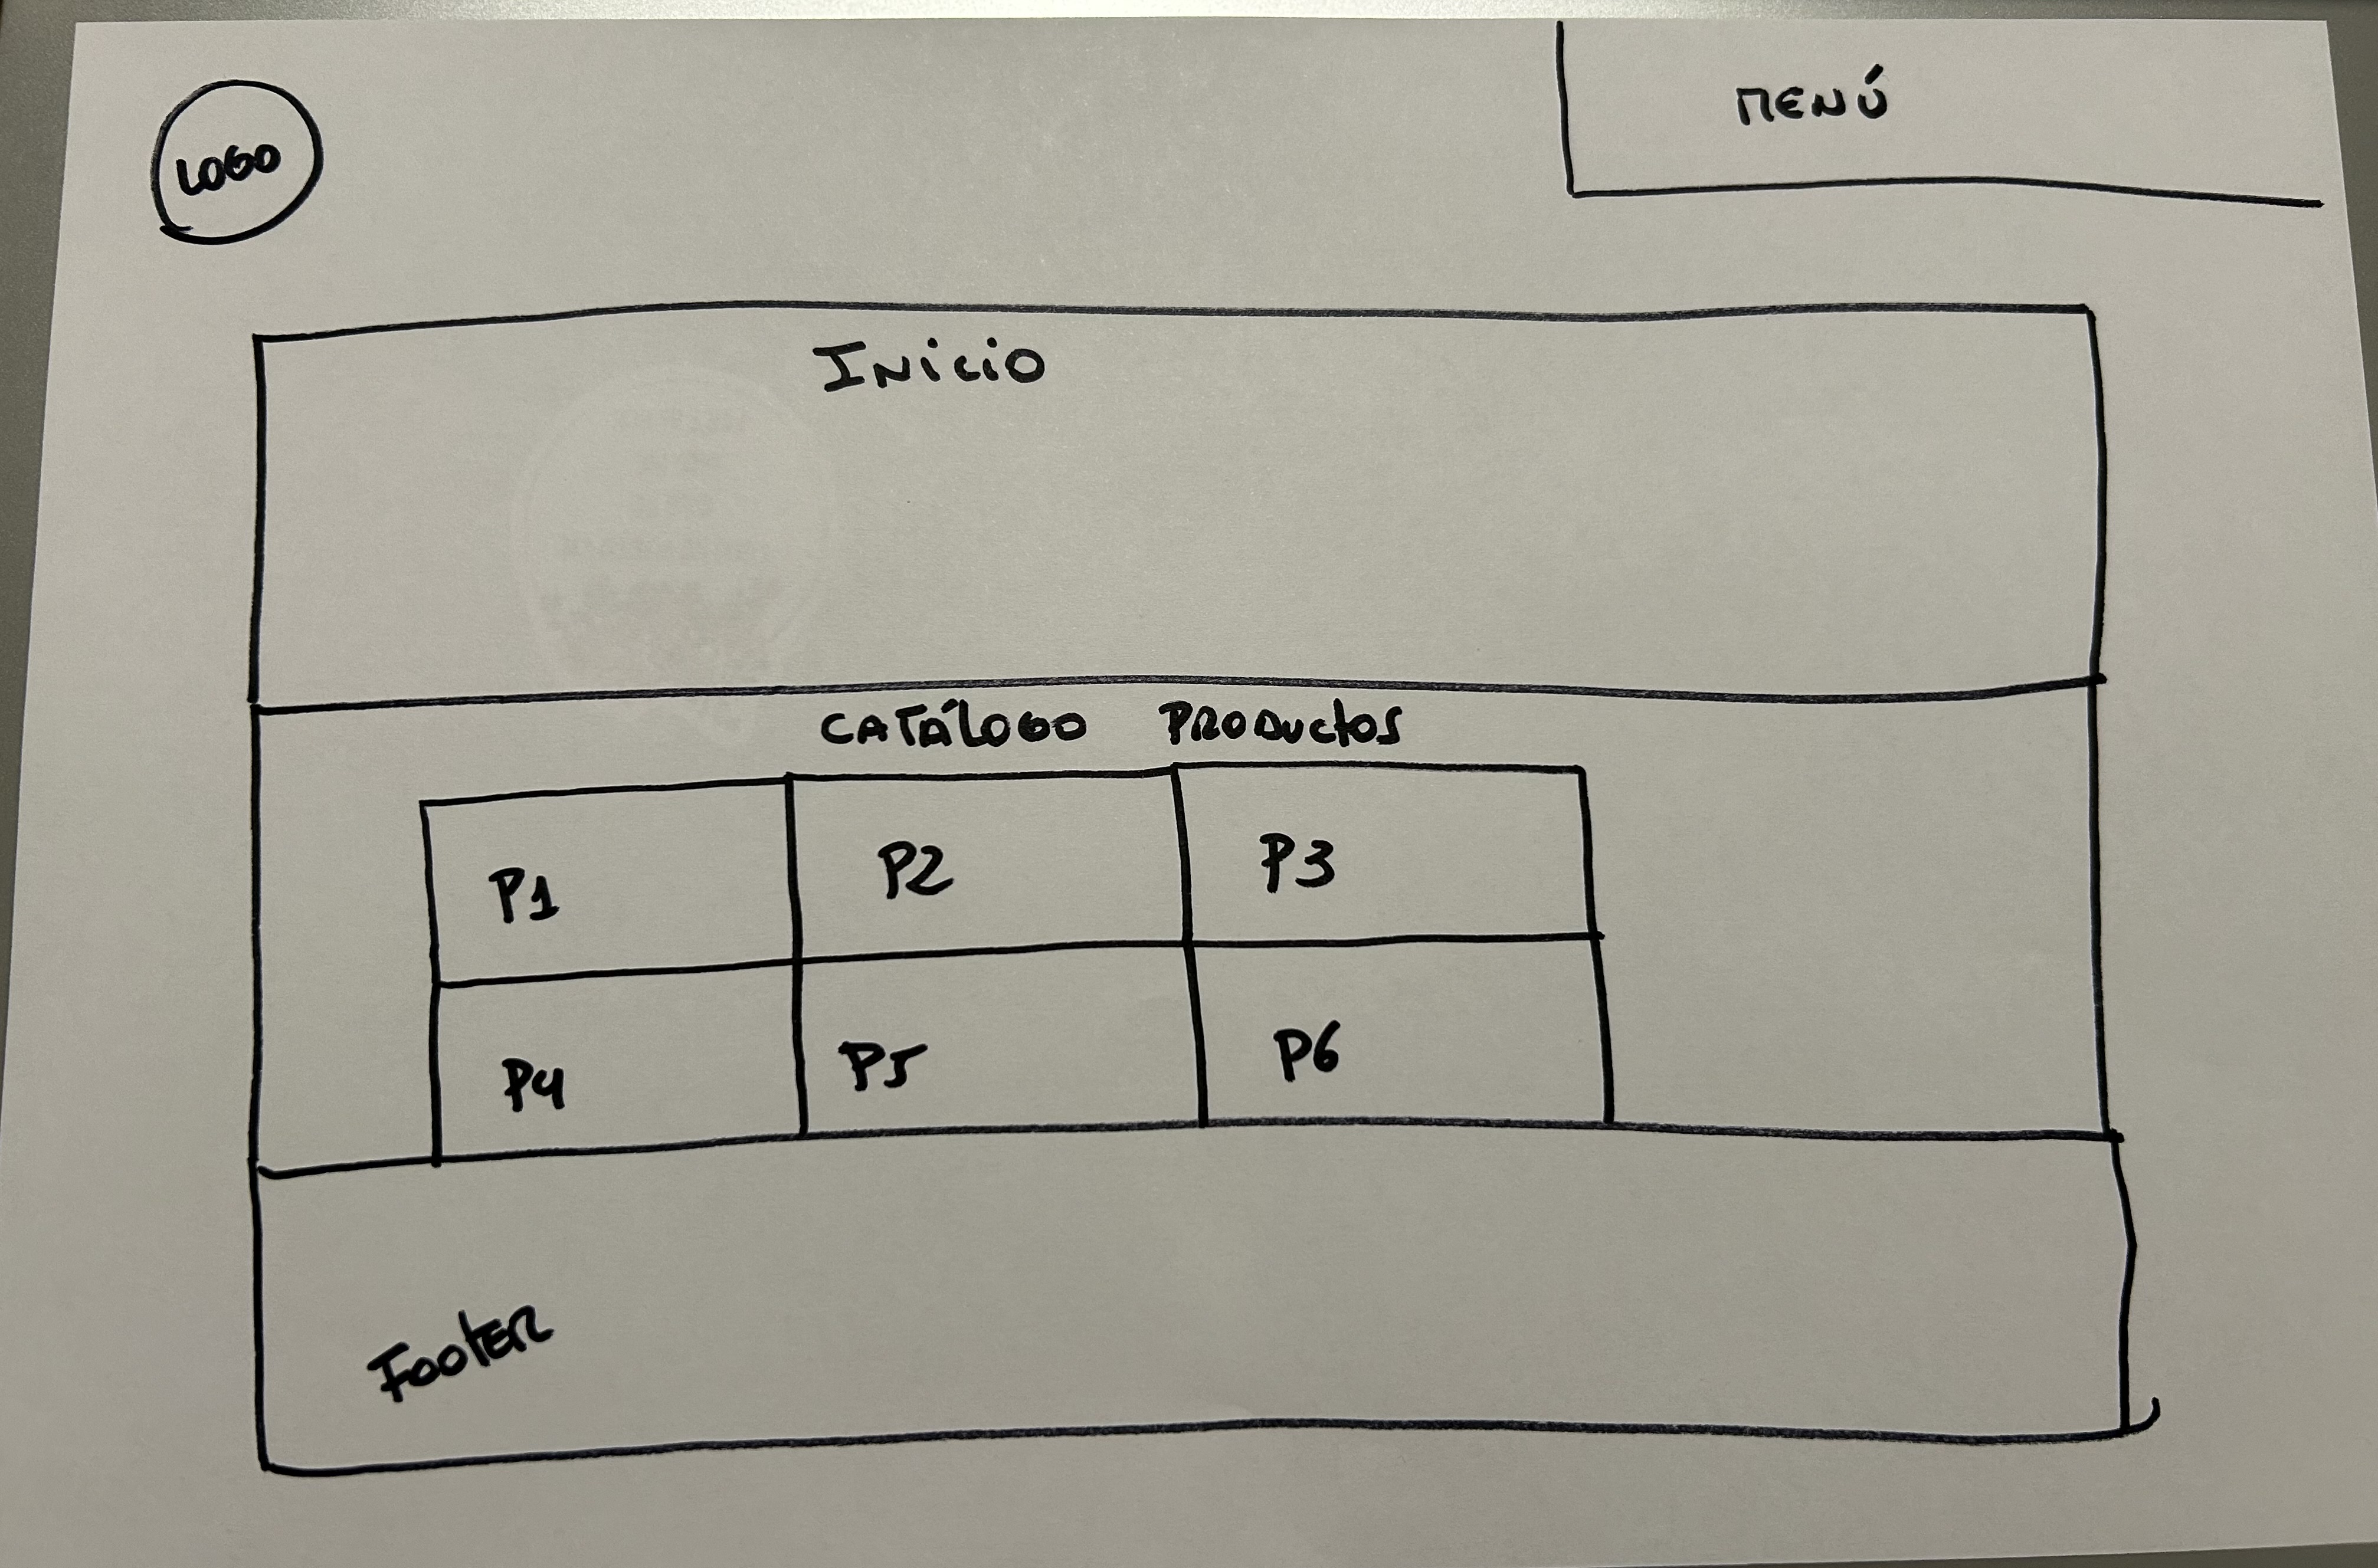 LOGO
MENÚ
INICIO
CATÁLOGO PRODUCTOS
P1 P2 P3
P4 P5 P6
FOOTER